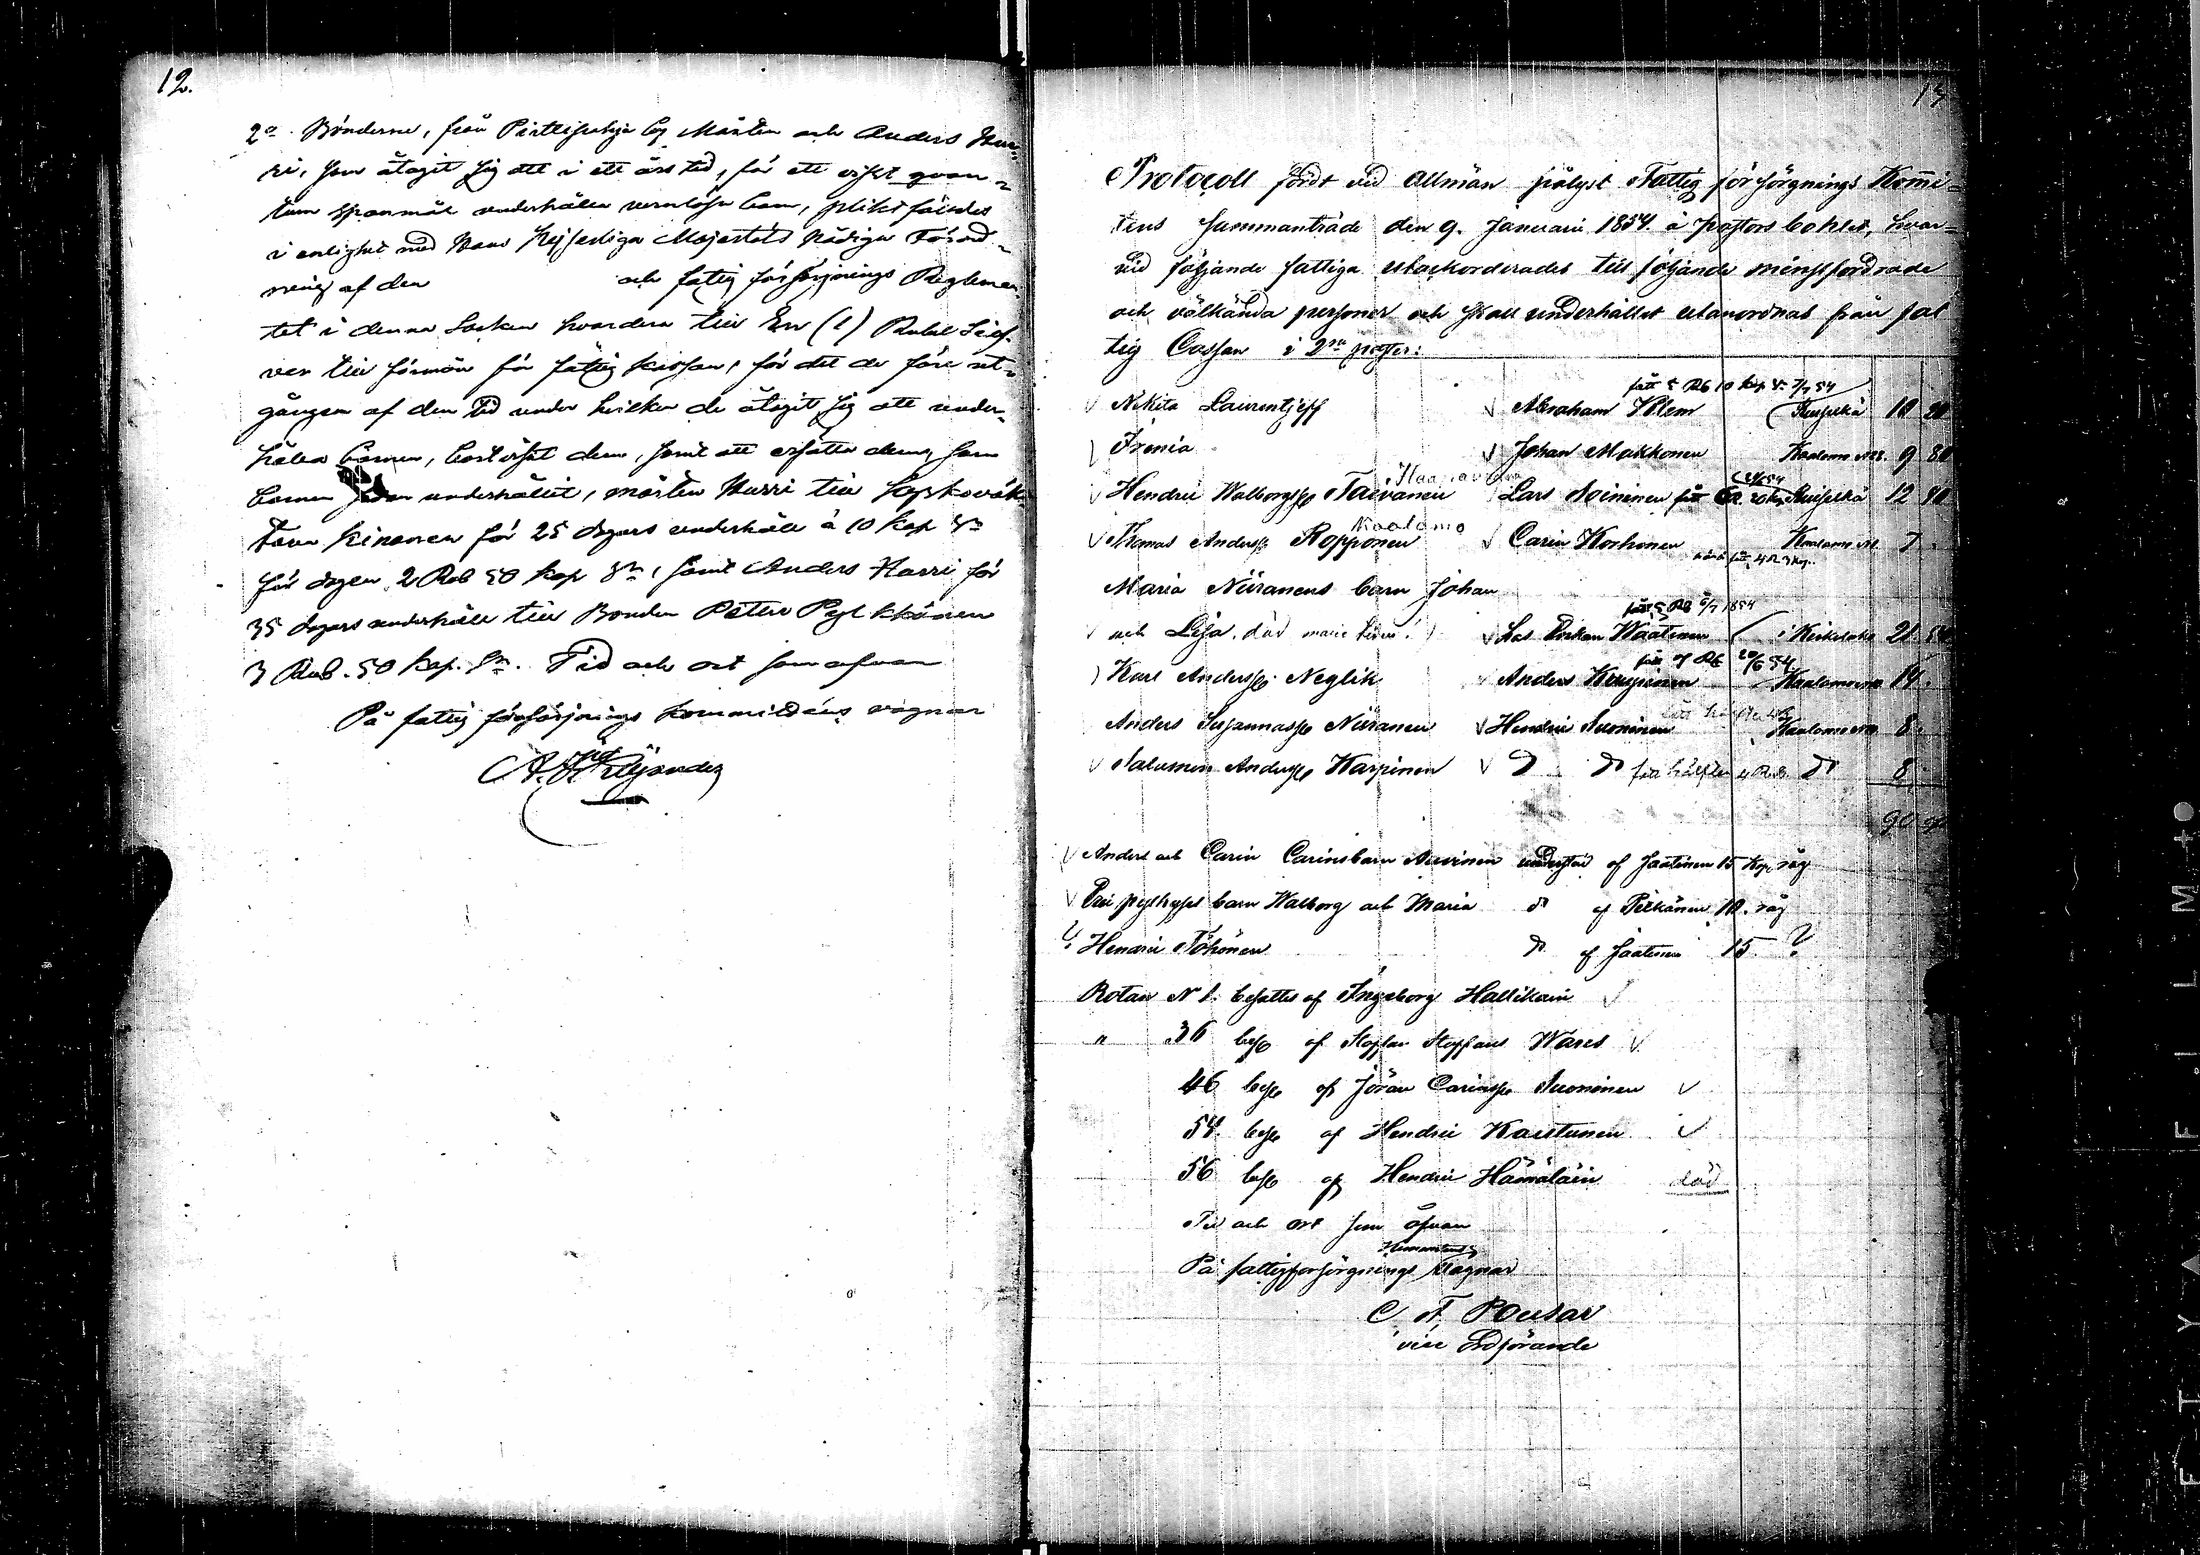 12.
2o. Bönderne, från Pirttipohja by Mårten och Anders Hur-
ri, som åtagit sig att i ett års tid, för ett visst qvan-
tum spanmål underhålla vernlösa barn, pliktfäldes
i enlighet med Hans Kejserliga Majestäts Nådiga Förord-
ning af den och fattig försörjnings Reglemen-
tet i denna Socken hvardera till En (1) Rubel Silf-
ver till förmån för fattig kassan, för det de före ut-
gången af den tid under hvilken de åtagit sig att under-
hålla barnen, bortvisat dem, samt att ersätta dem, som
barnen sedan underhållit, Mårten Hurri till
Kinonen för 25 dagars underhåll à 10 kop Sr
för dagen 2 Rub 50 kop Sr, samt Anders Hurri för
35 dagars underhåll till Bonden Petter Pylkkönen
3 Rub. 50 kop. Sr. Tid och ort som ofvan
På fattig försörjnings kommitténs vägnar
13
Protocoll fördt vid allmän pålyst Fattig försörgnings Komi-
tens sammanträde den 9. Januarii 1854 å pastors bohlet, hvar-
vid följande fattiga utackorderades till följande minstfordrade
och välkända personer och skall underhållet utanordnas från fat
tig Cassan i 2ne poster:
fått 5 Rb 10 kop Sr 7/7 54
Nikita Laurentjeff Abraham Ruispelkä 10
Irenia Johan Makkonen Kaalamo 9 80
Hendric Walborgss Taivanen Lars Soininen fått 20 kop Ruispelkä 12 80
Kaalamo
Thomas Anderss Ropponen Carin Korhonen Kaalamo 7
Maria Niiranens barn Johan
fått 5 Rb 1854
och Lisa, död Enkan Waatinen i Kirkolaks 21. 50
fått 7 Rb 20/6 54
Karl Anderss Neglik Anders Karpinen Kaalamo 14.
Anders Susannass Niiranen Hendric Suoninen Kaalamo 8.
Salomon Anderss Karpinen do do fått hälften 4 Rub do 8.
90
Anders och Carin Carinsbarn Auvinen understöd af Jaatinen 15 kop råg
barn Walborg och Maria do af Pitkänen 10. råg
Hendric Töhönen do af Jaatinen 15 ?
Rotan N 1. besattes af Ingeborg Hallikain
" 36 bess af Staffan Staffans Wares
46 bess af Jöran Carinss Suoninen
54. bess af Hendric Kaustunen
56 bess af Hendric Hämäläin död
Tid och ort som ofvan
På fattigförsörgnings Komitens vägnar
C F Pousar
vice Ordförande